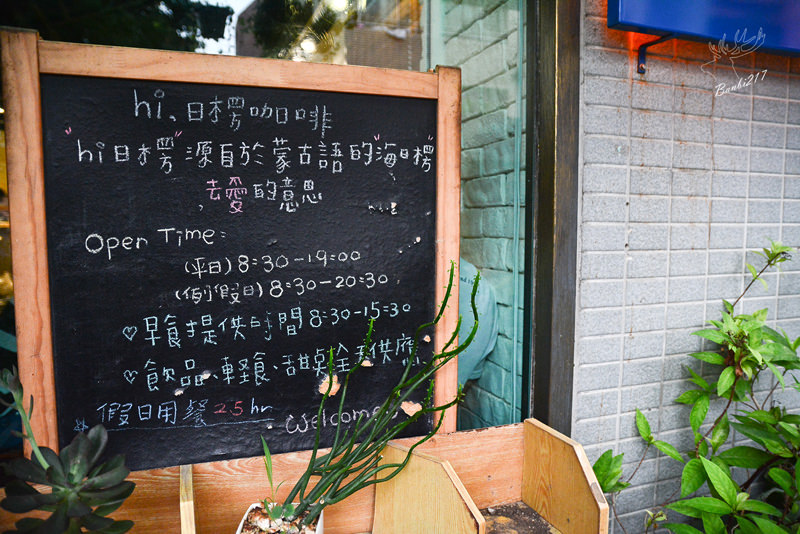 hi、日楞咖啡
"hi日楞"源自於蒙古語的"海日楞"
去愛的意思
Open Time:
(平日) 8:30-19:00
(例假日) 8:30-20:30
♡早餐提供時間 8:30-15:30
♡飲品、輕食、甜點全天供應
假日用餐 2.5 hr
Welcome
Banbi217